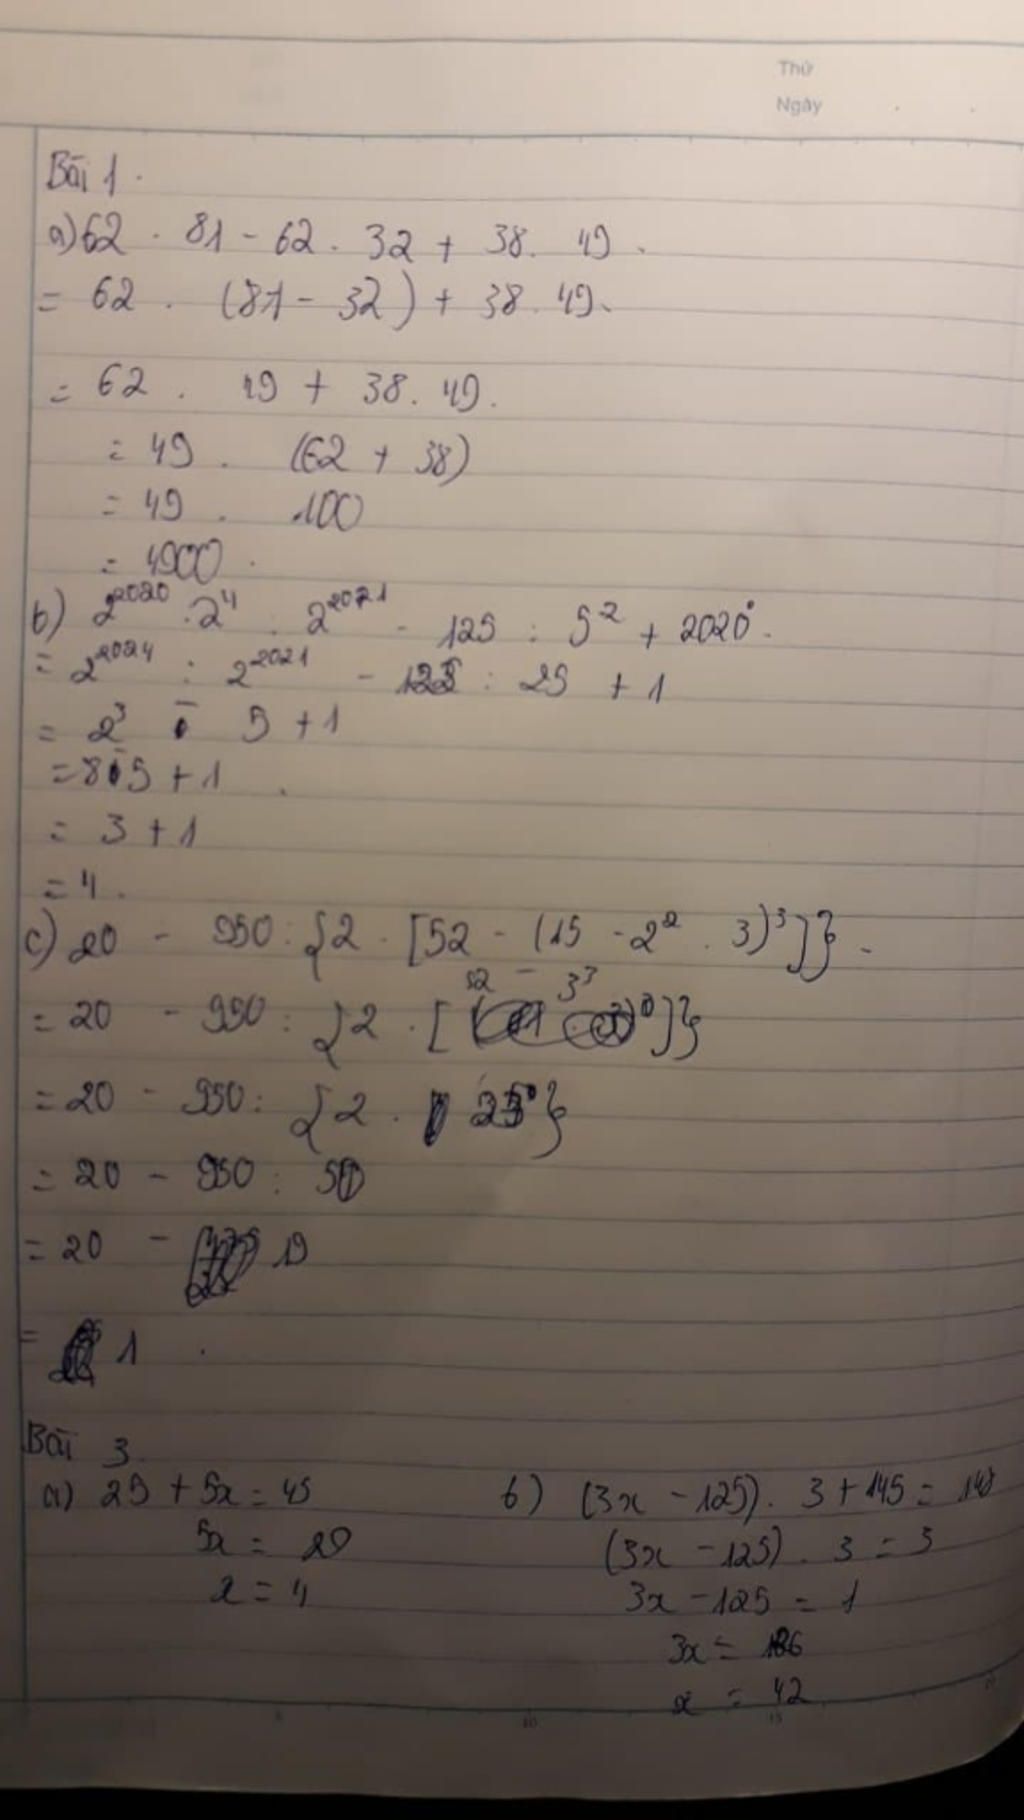 Thứ
Ngày
Bài 1.
a) 62 . 81 - 62 . 32 + 38 . 49.
= 62 . (81 - 32) + 38 . 49.
= 62 . 49 + 38 . 49.
= 49 . (62 + 38)
= 49 . 100
= 4900.
b) 2²⁰²⁰ . 2⁴ : 2²⁰²¹ - 125 : 5² + 2020⁰.
= 2²⁰²⁴ : 2²⁰²¹ - 125 : 25 + 1
= 2³ - 5 + 1
= 8 - 5 + 1
= 3 + 1
= 4.
c) 20 - 950 : {2 . [52 - (15 - 2² . 3)³]}.
= 20 - 950 : {2 . [52 - 3³]}
= 20 - 950 : {2 . 25}
= 20 - 950 : 50
= 20 - 19
= 1.
Bài 3
a) 25 + 5x = 45
5x = 20
x = 4
b) (3x - 125) . 3 + 145 = 148
(3x - 125) . 3 = 3
3x - 125 = 1
3x = 126
x = 42